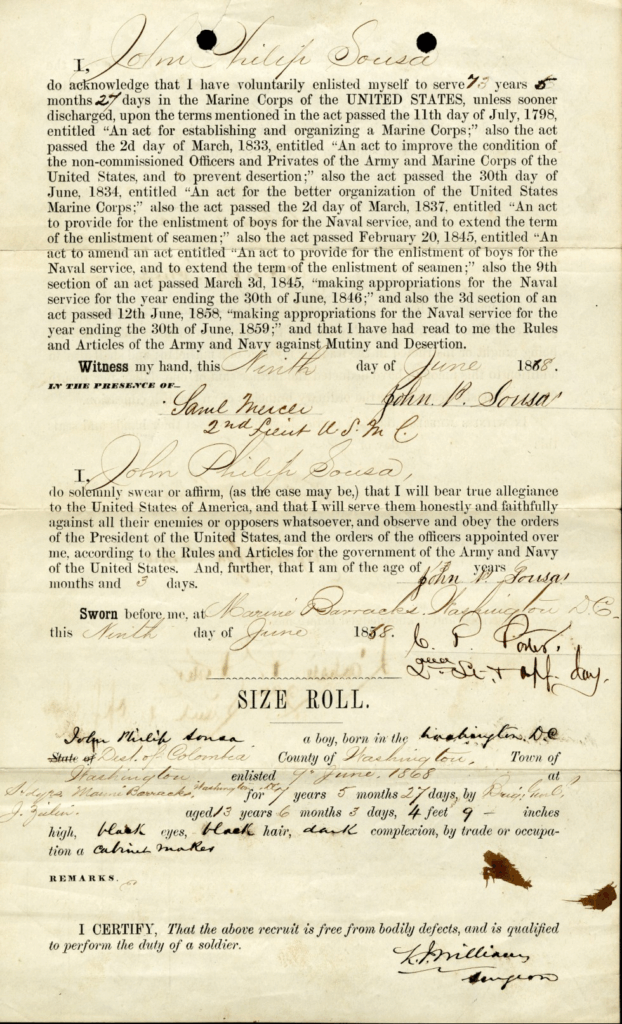 I, John Philip Sousa
do acknowledge that I have voluntarily enlisted myself to serve 7 years 5
months 27 days in the Marine Corps of the UNITED STATES, unless sooner
discharged, upon the terms mentioned in the act passed the 11th day of July, 1798,
entitled “An act for establishing and organizing a Marine Corps;” also the act
passed the 2d day of March, 1833, entitled “An act to improve the condition of
the non-commissioned Officers and Privates of the Army and Marine Corps of the
United States, and to prevent desertion;” also the act passed the 30th day of
June, 1834, entitled “An act for the better organization of the United States
Marine Corps;” also the act passed the 2d day of March, 1837, entitled “An act
to provide for the enlistment of boys for the Naval service, and to extend the term
of the enlistment of seamen;” also the act passed February 20, 1845, entitled “An
act to amend an act entitled “An act to provide for the enlistment of boys for the
Naval service, and to extend the term of the enlistment of seamen;” also the 9th
section of an act passed March 3d, 1845, “making appropriations for the Naval
service for the year ending the 30th of June, 1846;” and also the 3d section of an
act passed 12th June, 1858, “making appropriations for the Naval service for the
year ending the 30th of June, 1859;” and that I have had read to me the Rules
and Articles of the Army and Navy against Mutiny and Desertion.
Witness my hand, this Ninth day of June 1868.
IN THE PRESENCE OF—
Saml Mercer John P. Sousa
2nd Lieut U. S. M. C.
I, John Philip Sousa,
do solemnly swear or affirm, (as the case may be,) that I will bear true allegiance
to the United States of America, and that I will serve them honestly and faithfully
against all their enemies or opposers whatsoever, and observe and obey the orders
of the President of the United States, and the orders of the officers appointed over
me, according to the Rules and Articles for the government of the Army and Navy
of the United States. And, further, that I am of the age of years
months and 3 days. John P. Sousa
Sworn before me, at Marine Barracks Washington D.C.
this Ninth day of June 1868.
C. P. Porter,
off. day.
SIZE ROLL.
John Philip Sousa a boy, born in the Washington, D.C
State of Dist. of Colombia County of Washington, Town of
Washington enlisted 9" June, 1868 at
Barracks, Washington for 7 years 5 months 27 days, by
J. Zeilin. aged 13 years 6 months 3 days, 4 feet 9 - inches
high, black eyes, black hair, dark complexion, by trade or occupa-
tion a cabinet maker
REMARKS.
I CERTIFY, That the above recruit is free from bodily defects, and is qualified
to perform the duty of a soldier.
Williams
Surgeon